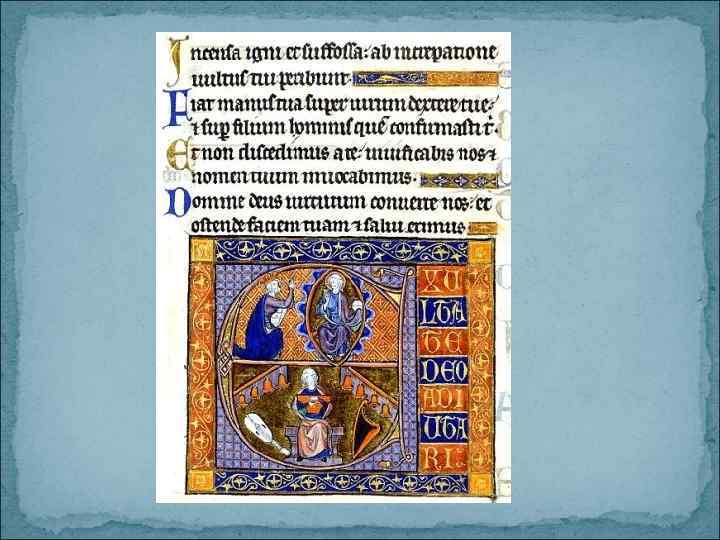 Incensa igni et suffossa: ab increpatione
uultus tui peribunt.
Fiat manus tua super uirum dextere tue:
⁊ sup filium hominis quē confirmasti t̄.
Et non discedimus a te: uiuificabis nos ⁊
nomen tuum inuocabimus.
Domine deus uirtutum conuerte nos: et
ostende faciem tuam ⁊ salui erimus
XU
LTA
TE
DEO
ADI
RI